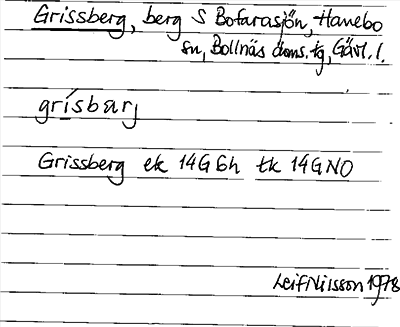 Grissberg, berg S Bofarasjön, Hanebo
sn, Bollnäs doms. tg, Gävl. l.
grísbarj
Grissberg ek 14G 6h tk 14G NO
Leif Nilsson 1978